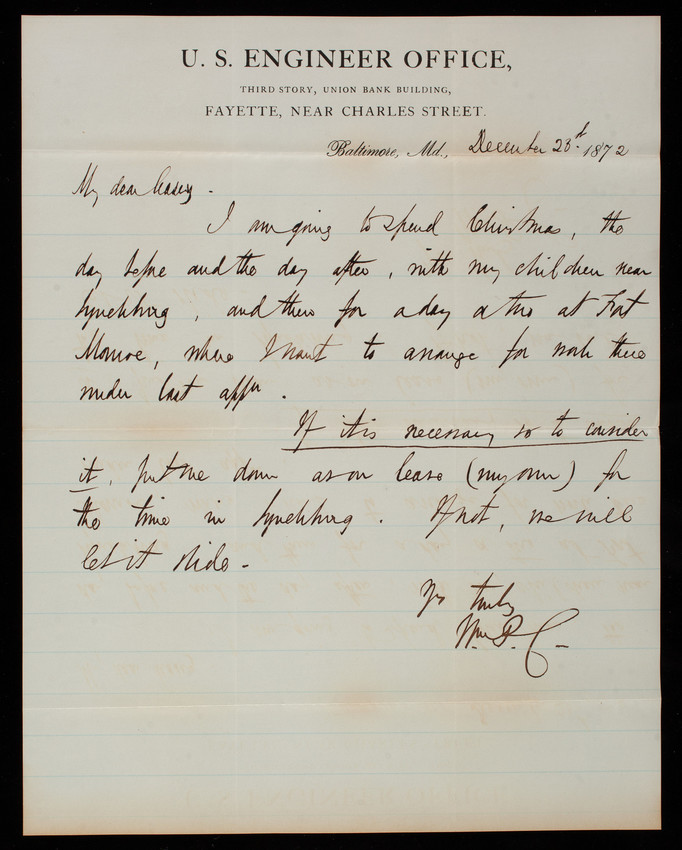 U. S. ENGINEER OFFICE,
THIRD STORY, UNION BANK BUILDING,
FAYETTE, NEAR CHARLES STREET.
Baltimore, Md., December 23d. 1872
My dear Casey -
I am going to spend Christmas, the
day before and the day after, with my children near
Lynchburg, and then for a day or two at Fort
Monroe, where I want to arrange for work there
under last appn.
If it is necessary so to consider
it, put me down as on leave (my own) for
the time in Lynchburg. If not, we will
let it slide -
Yrs truly
Wm P. C-